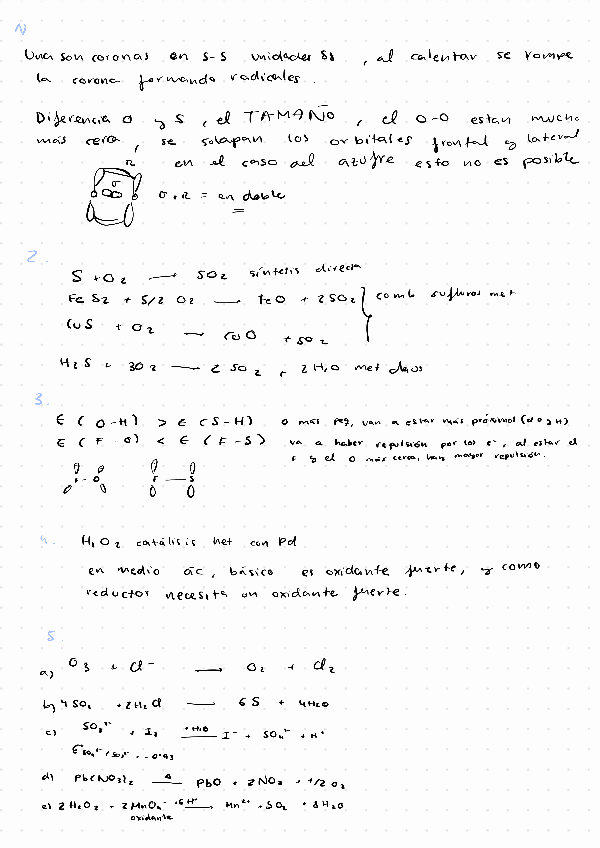 Una son coronas en S-S unidades S8, al calentar se rompe
la corona formando radicales.
Diferencia O y S, el TAMAÑO, el O-O estan mucho
más cerca, se solapan los orbitales frontal y lateral
en el caso del azufre esto no es posible
σ + π = en doble
2.
S + O2 → SO2 síntesis directa
FeS2 + 5/2 O2 → FeO + 2SO2
comb sulfuros met
CuS + O2 → CuO + SO2
H2S + 3O2 → 2SO2 + 2H2O met claus
3.
E (O-H) > E (S-H) O más peq, van a estar más próximos (el O y H)
E (F-O) < E (F-S) va a haber repulsión por los e-, al estar el
F y el O más cerca, hay mayor repulsión.
F - O F - S
4. H2O2 catálisis het con Pd
en medio ác, básico es oxidante fuerte, y como
reductor necesita un oxidante fuerte.
5.
a) O3 + Cl- → O2 + Cl2
b) 4SO2 + 2H2Cl → 6S + 4H2O
c) SO3 2- + I2 +H2O → I- + SO4 2- + H+
d) Pb(NO3)2 Δ → PbO + 2NO2 + 1/2 O2
e) 2H2O2 + 2MnO4- +6H+ → Mn2+ + 5O2 + 8H2O
oxidante